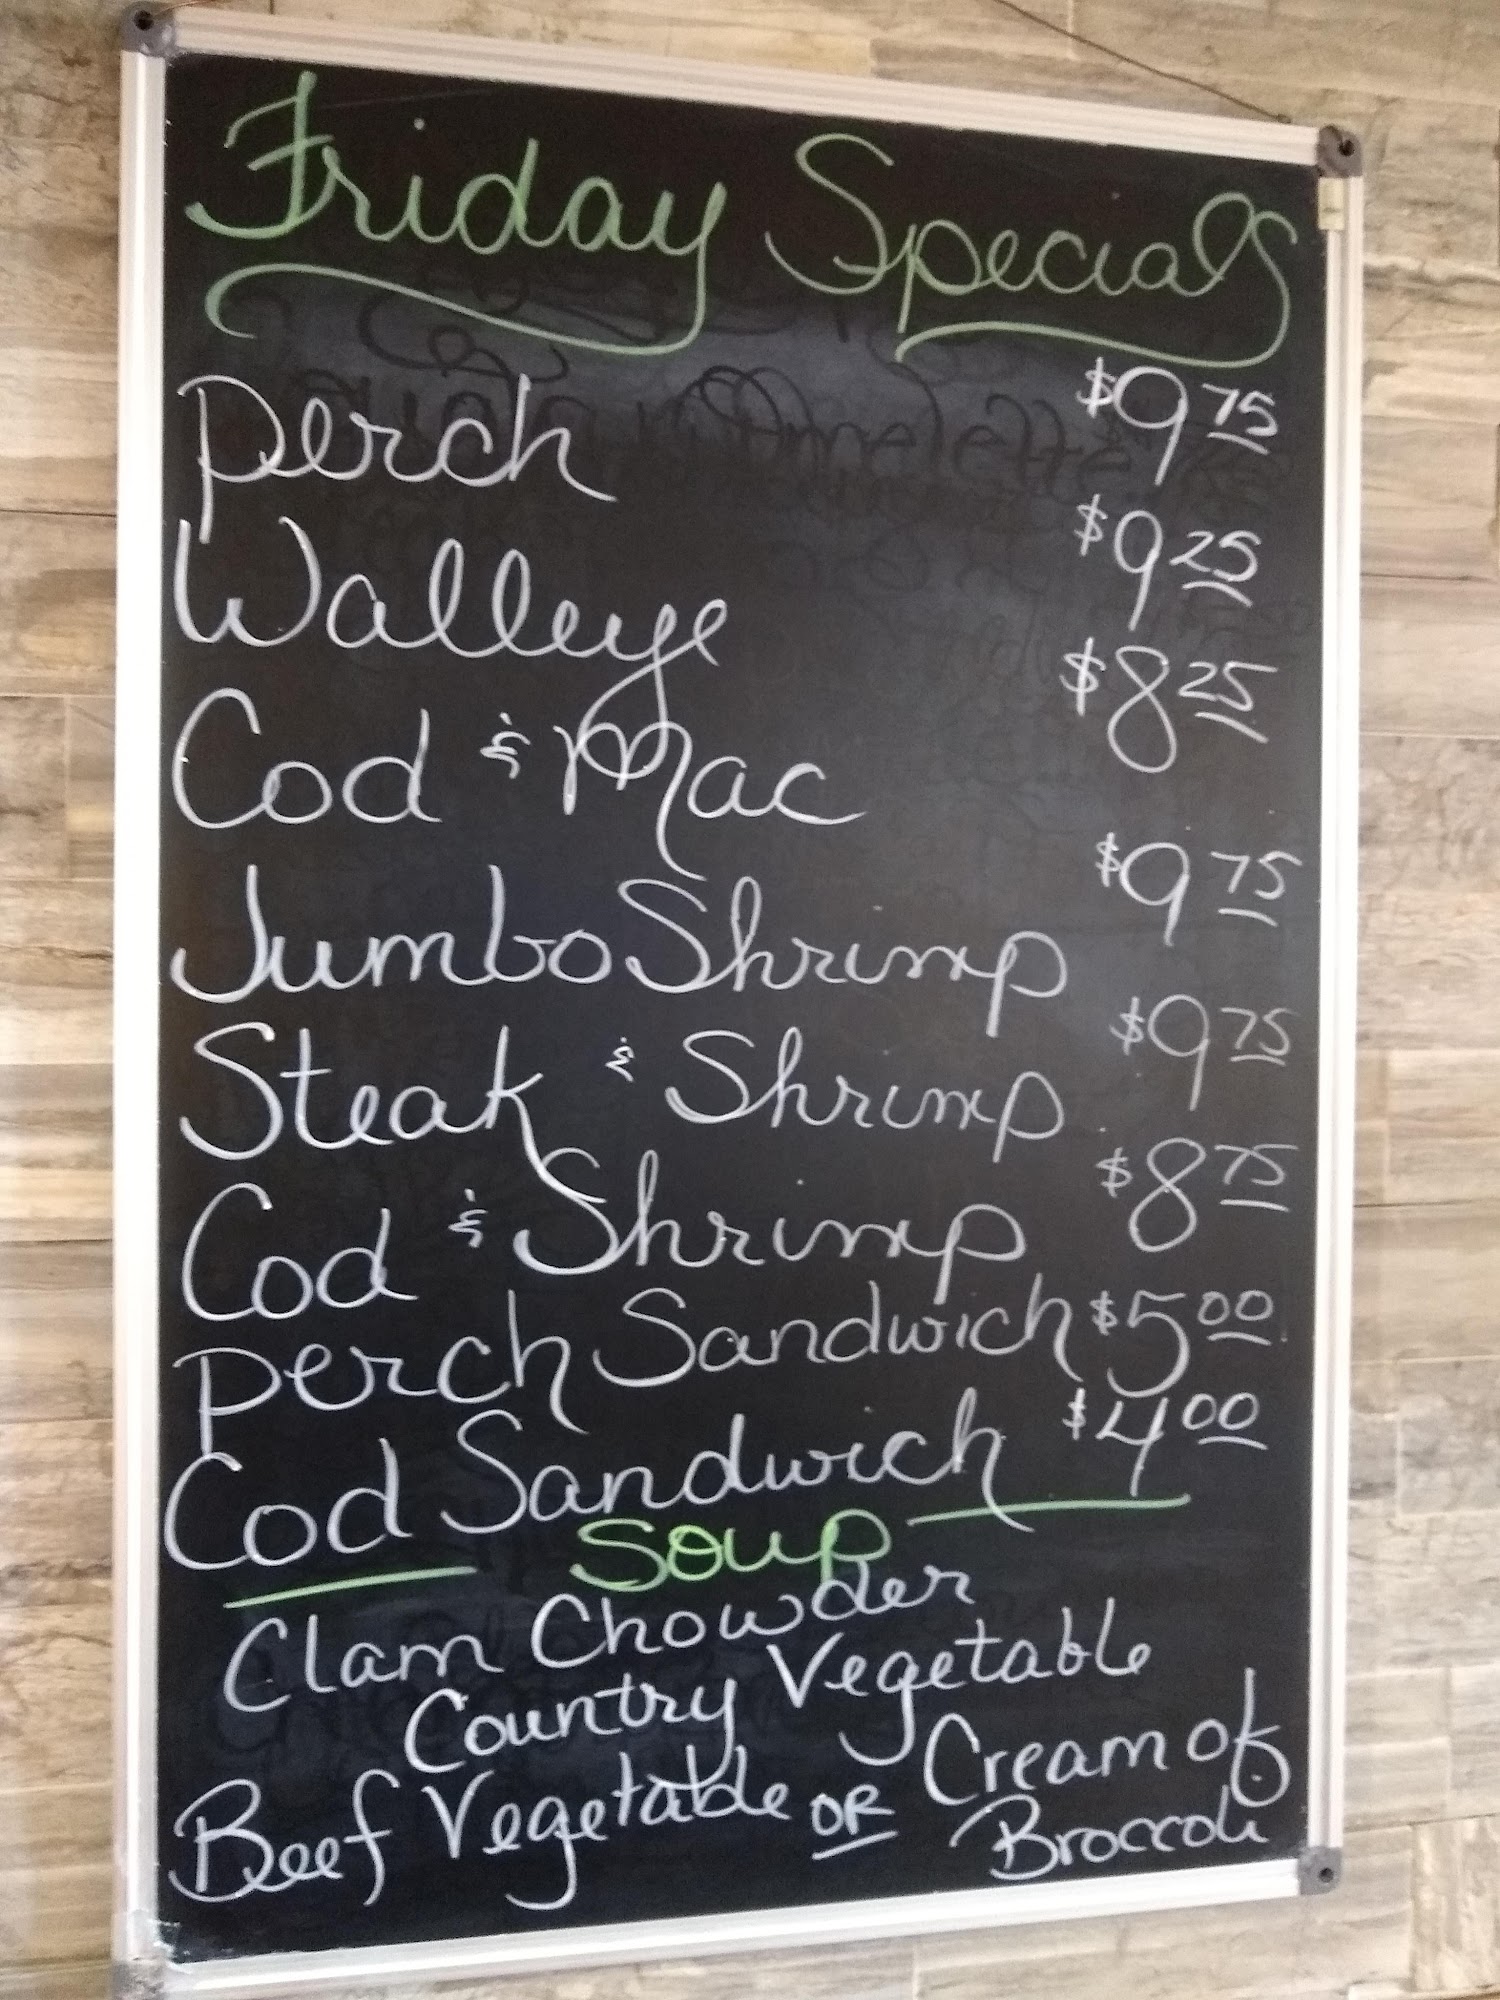 Friday Specials
Perch $9.75
Walleye $9.25
Cod & Mac $8.25
Jumbo Shrimp $9.75
Steak & Shrimp $9.75
Cod & Shrimp $8.75
Perch Sandwich $5.00
Cod Sandwich $4.00
Soup
Clam Chowder
Country Vegetable
Beef Vegetable OR Cream of
Broccoli